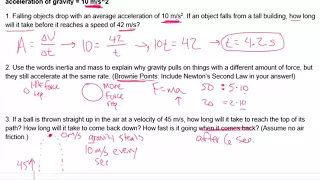 acceleration of gravity = 10 m/s^2
1. Falling objects drop with an average acceleration of 10 m/s². If an object falls from a tall building, how long
will it take before it reaches a speed of 42 m/s?
A = ΔV/Δt → 10 = 42/t → 10t = 42 → t = 4.2 s
2. Use the words inertia and mass to explain why gravity pulls on things with a different amount of force, but
they still accelerate at the same rate. (Brownie Points: Include Newton's Second Law in your answer!)
little force req. More force req. F = ma 50 = 5·10
20 = 2·10
3. If a ball is thrown straight up in the air at a velocity of 45 m/s, how long will it take to reach the top of its
path? How long will it take to come back down? How fast is it going when it comes back? (Assume no air
friction.) 0 m/s gravity steals after 6 sec.
10 m/s every
sec
45